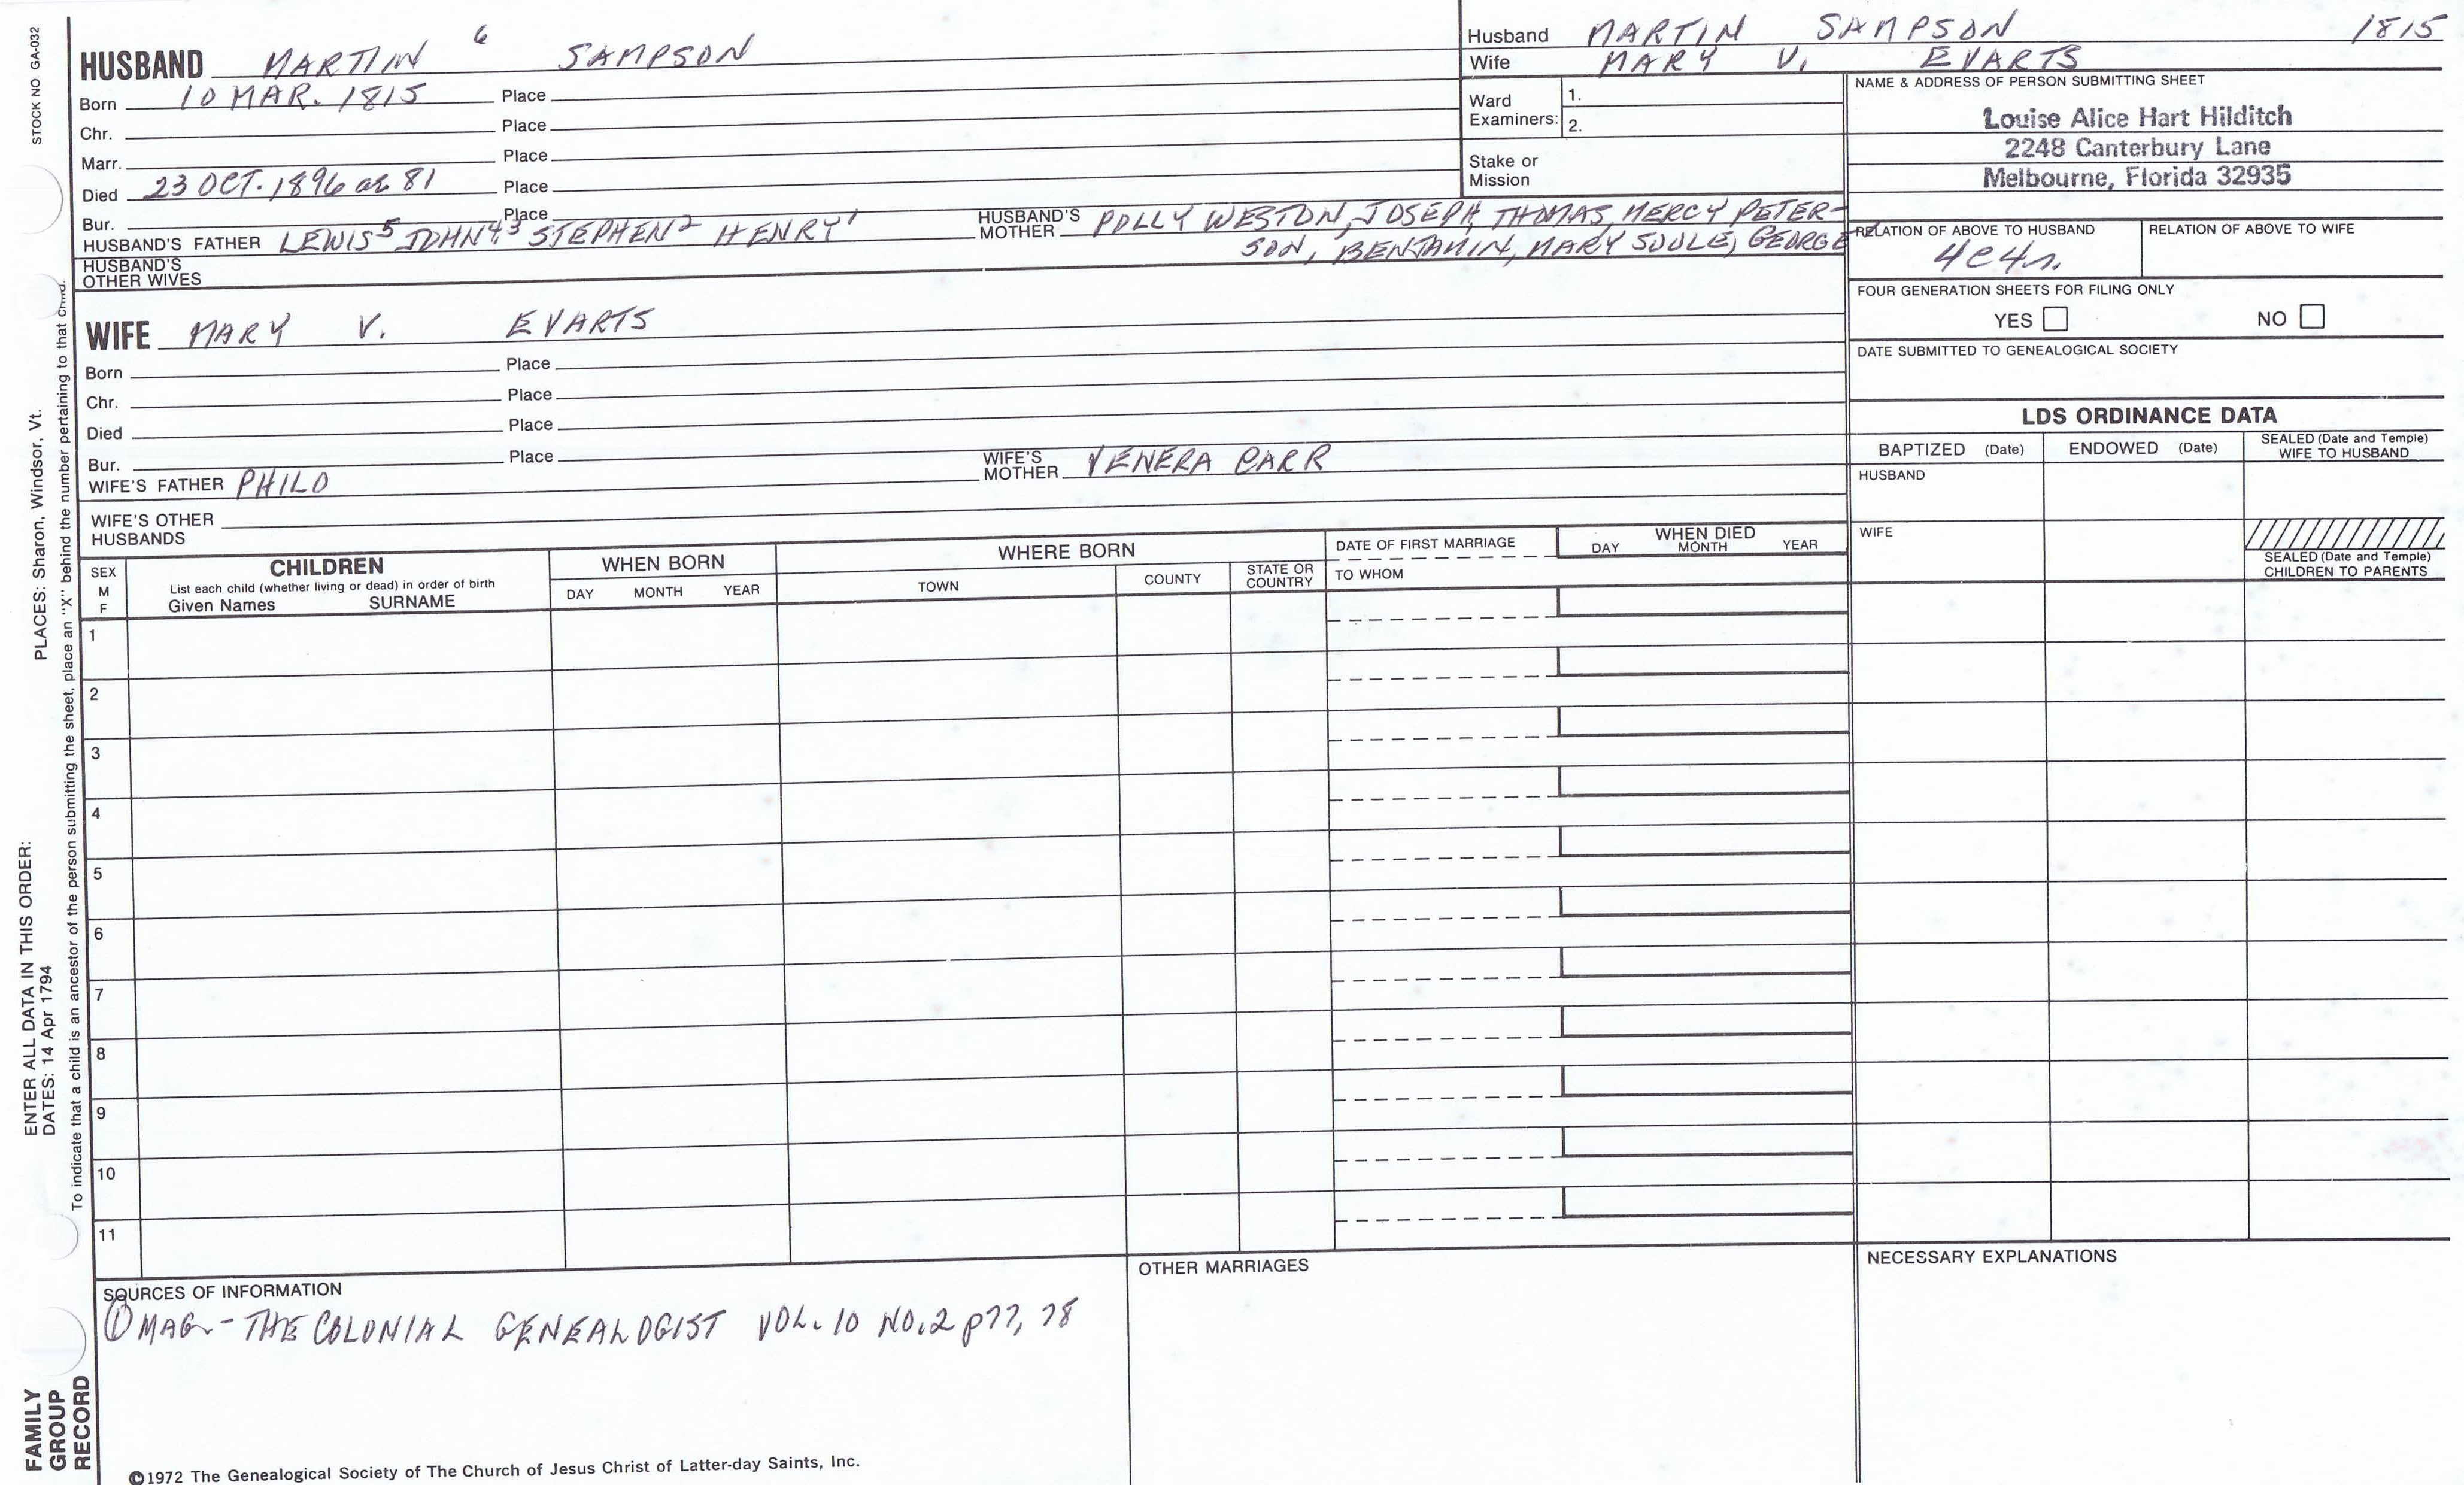 STOCK NO GA-032
HUSBAND MARTIN 6 SAMPSON
Born 10 MAR. 1815 Place
Chr. Place
Marr. Place
Died 23 OCT. 1896 ae 81 Place
Bur. Place
HUSBAND'S FATHER LEWIS5 JOHN4,3 STEPHEN2 HENRY1
HUSBAND'S MOTHER POLLY WESTON, JOSEPH, THOMAS, MERCY PETER-
SON, BENJAMIN, MARY SOULE, GEORGE
HUSBAND'S OTHER WIVES
Husband MARTIN SAMPSON 1815
Wife MARY V. EVARTS
Ward Examiners: 1.
2.
Stake or Mission
NAME & ADDRESS OF PERSON SUBMITTING SHEET
Louise Alice Hart Hilditch
2248 Canterbury Lane
Melbourne, Florida 32935
RELATION OF ABOVE TO HUSBAND RELATION OF ABOVE TO WIFE
4c4r.
FOUR GENERATION SHEETS FOR FILING ONLY
YES NO
DATE SUBMITTED TO GENEALOGICAL SOCIETY
WIFE MARY V. EVARTS
Born Place
Chr. Place
Died Place
Bur. Place
WIFE'S FATHER PHILO
WIFE'S MOTHER VENERA CARR
WIFE'S OTHER HUSBANDS
LDS ORDINANCE DATA
BAPTIZED (Date) ENDOWED (Date) SEALED (Date and Temple) WIFE TO HUSBAND
HUSBAND
WIFE
SEALED (Date and Temple) CHILDREN TO PARENTS
SEX M F
CHILDREN
List each child (whether living or dead) in order of birth
Given Names SURNAME
WHEN BORN
DAY MONTH YEAR
WHERE BORN
TOWN COUNTY STATE OR COUNTRY
DATE OF FIRST MARRIAGE
TO WHOM
WHEN DIED
DAY MONTH YEAR
1
2
3
4
5
6
7
8
9
10
11
SOURCES OF INFORMATION
① MAG - THE COLONIAL GENEALOGIST VOL. 10 NO. 2 p77, 78
OTHER MARRIAGES
NECESSARY EXPLANATIONS
©1972 The Genealogical Society of The Church of Jesus Christ of Latter-day Saints, Inc.
FAMILY
GROUP
RECORD
ENTER ALL DATA IN THIS ORDER:
DATES: 14 Apr 1794
PLACES: Sharon, Windsor, Vt.
To indicate that a child is an ancestor of the person submitting the sheet, place an "X" behind the number pertaining to that child.